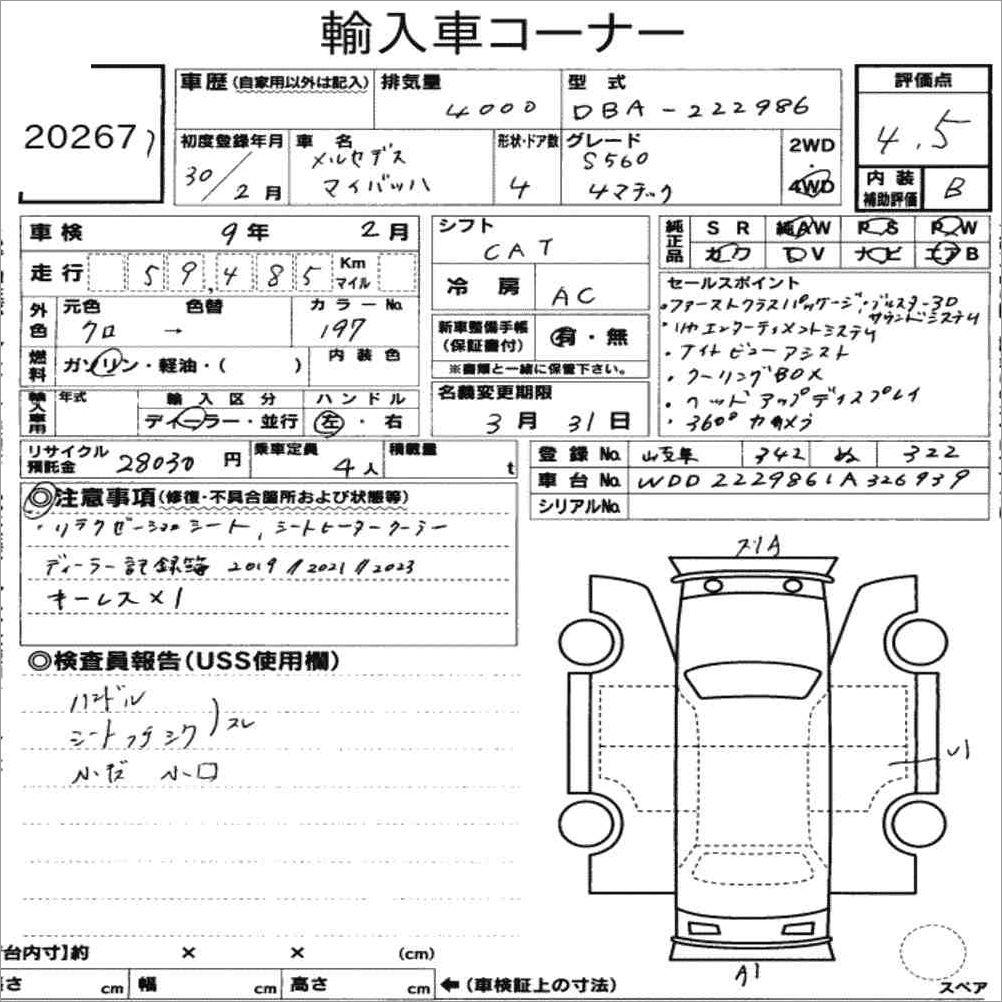 輸入車コーナー
20267
車歴(自家用以外は記入)
排気量
4000
型式
DBA-222986
評価点
4.5
初度登録年月
30/2月
車名
メルセデス
マイバッハ
形状・ドア数
4
グレード
S560
4マチック
2WD
・
4WD
内装
補助評価
B
車検 9年 2月
走行 59,485 Km
マイル
外色
元色
クロ
色替
→
カラーNo.
197
燃料
ガソリン・軽油・( )
内装色
輸入車用
年式
輸入区分
ディーラー・並行
ハンドル
左・右
シフト
CAT
冷房
AC
新車整備手帳
(保証書付)
有・無
※書類と一緒に保管下さい。
名義変更期限
3月 31日
純正品
SR 純AW PS PW
カワ TV ナビ エアB
セールスポイント
・ファーストクラスパッケージ,ブルメスター3D
サウンドシステム
・リヤエンターティメントシステム
・ナイトビューアシスト
・クーリングBOX
・ヘッドアップディスプレイ
・360°カメラ
リサイクル
預託金
28030円
乗車定員
4人
積載量
t
登録No.
342 ぬ 322
車台No.
WDD2229861A326939
シリアルNo.
◎注意事項(修復・不具合箇所および状態等)
・リラクゼーションシート,シートヒータークーラー
ディーラー記録簿 2019//2021//2023
キーレス×1
◎検査員報告(USS使用欄)
ハンドル
シート
スレ
小キズ 小凹
スリA
A1
スペア
台内寸】約 × × (cm)
さ cm 幅 cm 高さ cm ←(車検証上の寸法)